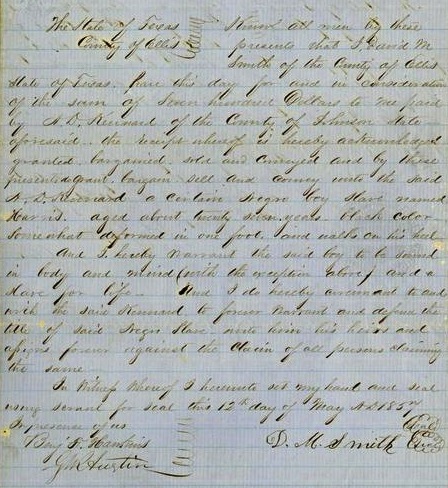 The State of Texas
County of Ellis
Know all men by these
presents that I, David M
Smith of the County of Ellis
State of Texas, have this day for and in consideration
of the sum of Seven hundred Dollars to me paid
by A. D. Kinnard of the County of Johnson State
aforesaid the receipt whereof is hereby acknowledged
granted, bargained, sold and conveyed and by these
presents do grant, bargain sell and convey unto the said
A. D. Kinnard a certain Negro boy slave named
Harris. aged about twenty seven years black color
somewhat deformed in one foot. and walks on his heel
And I hereby warrant the said boy to be sound
in body and mind (with the exception above) and a
slave for life. And I do hereby covenant to and
with the said Kinnard to forever warrant and defend the
title of said Negro Slave unto him his heirs and
assigns forever against the claim of all persons claiming
the same
In Witness Whereof I hereunto set my hand and seal
using scrawl for seal this 12th day of May AD 1857
In presence of us
Benj. F. Hawkins
G W Austin
D. M. Smith
Seal